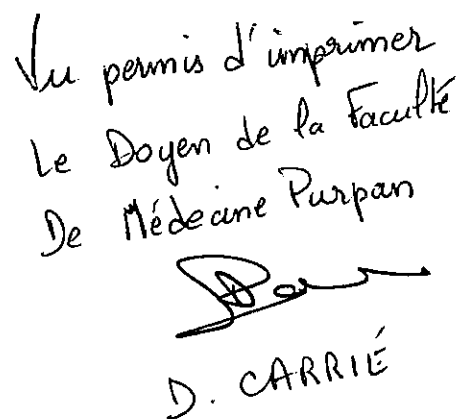 Vu permis d'imprimer
Le Doyen de la Faculté
De Médecine Purpan
D. CARRIÉ